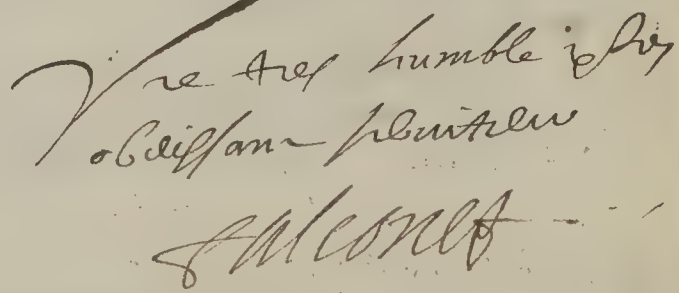 Vre tres humble et tres
obeissant serviteur
Falconet